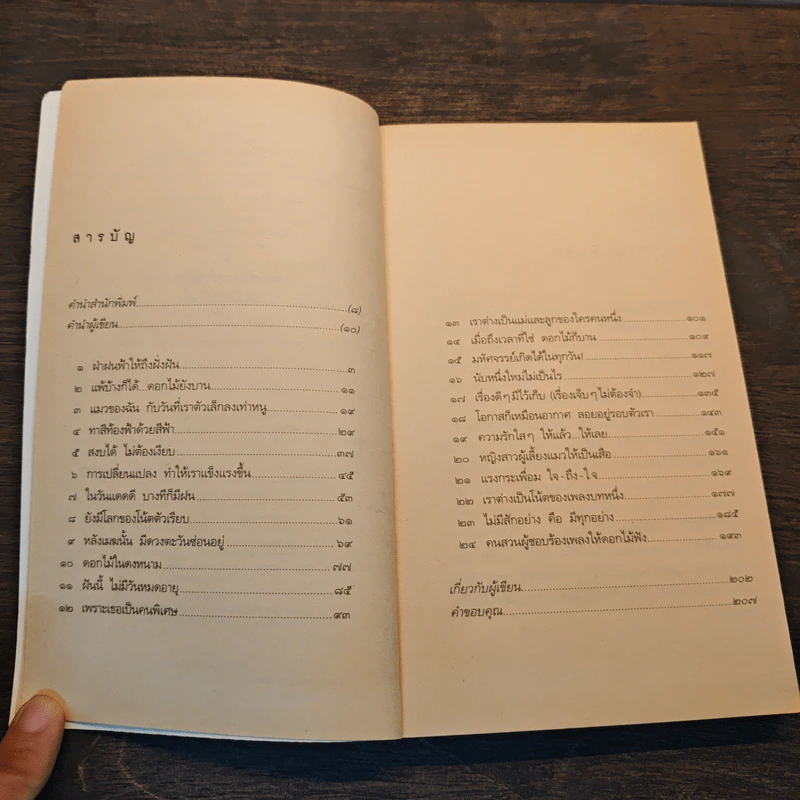 สารบัญ
คำนำสำนักพิมพ์.....(๘)
คำนำผู้เขียน.....(๑๐)
๑ ฝ่าฝนฟ้าให้ถึงฝั่งฝัน.....๓
๒ แพ้บ้างก็ได้...ดอกไม้ยังบาน.....๑๑
๓ แมวของฉัน กับวันที่เราตัวเล็กลงเท่าหนู.....๑๙
๔ ทาสีท้องฟ้าด้วยสีฟ้า.....๒๙
๕ สงบได้ ไม่ต้องเงียบ.....๓๗
๖ การเปลี่ยนแปลง ทำให้เราแข็งแรงขึ้น.....๔๕
๗ ในวันแดดดี บางทีก็มีฝน.....๕๓
๘ ยังมีโลกของโน้ตตัวเรียบ.....๖๑
๙ หลังเมฆนั้น มีดวงตะวันซ่อนอยู่.....๖๙
๑๐ ดอกไม้ในดงหนาม.....๗๗
๑๑ ฝันนี้ ไม่มีวันหมดอายุ.....๘๕
๑๒ เพราะเธอเป็นคนพิเศษ.....๙๓
๑๓ เราต่างเป็นแม่และลูกของใครคนหนึ่ง.....๑๐๑
๑๔ เมื่อถึงเวลาที่ใช่ ดอกไม้ก็บาน.....๑๐๙
๑๕ มหัศจรรย์เกิดได้ในทุกวัน!.....๑๑๗
๑๖ นับหนึ่งใหม่ไม่เป็นไร.....๑๒๗
๑๗ เรื่องดีๆ มีไว้เก็บ (เรื่องเจ็บๆ ไม่ต้องจำ).....๑๓๕
๑๘ โอกาสก็เหมือนอากาศ ลอยอยู่รอบตัวเรา.....๑๔๓
๑๙ ความรักใสๆ ให้แล้ว...ให้เลย.....๑๕๑
๒๐ หญิงสาวผู้เลี้ยงแมวให้เป็นเสือ.....๑๖๑
๒๑ แรงกระเพื่อม ใจ-ถึง-ใจ.....๑๖๙
๒๒ เราต่างเป็นโน้ตของเพลงบทหนึ่ง.....๑๗๗
๒๓ ไม่มีสักอย่าง คือ มีทุกอย่าง.....๑๘๕
๒๔ คนสวนผู้ชอบร้องเพลงให้ดอกไม้ฟัง.....๑๙๓
เกี่ยวกับผู้เขียน.....๒๐๒
คำขอบคุณ.....๒๐๗